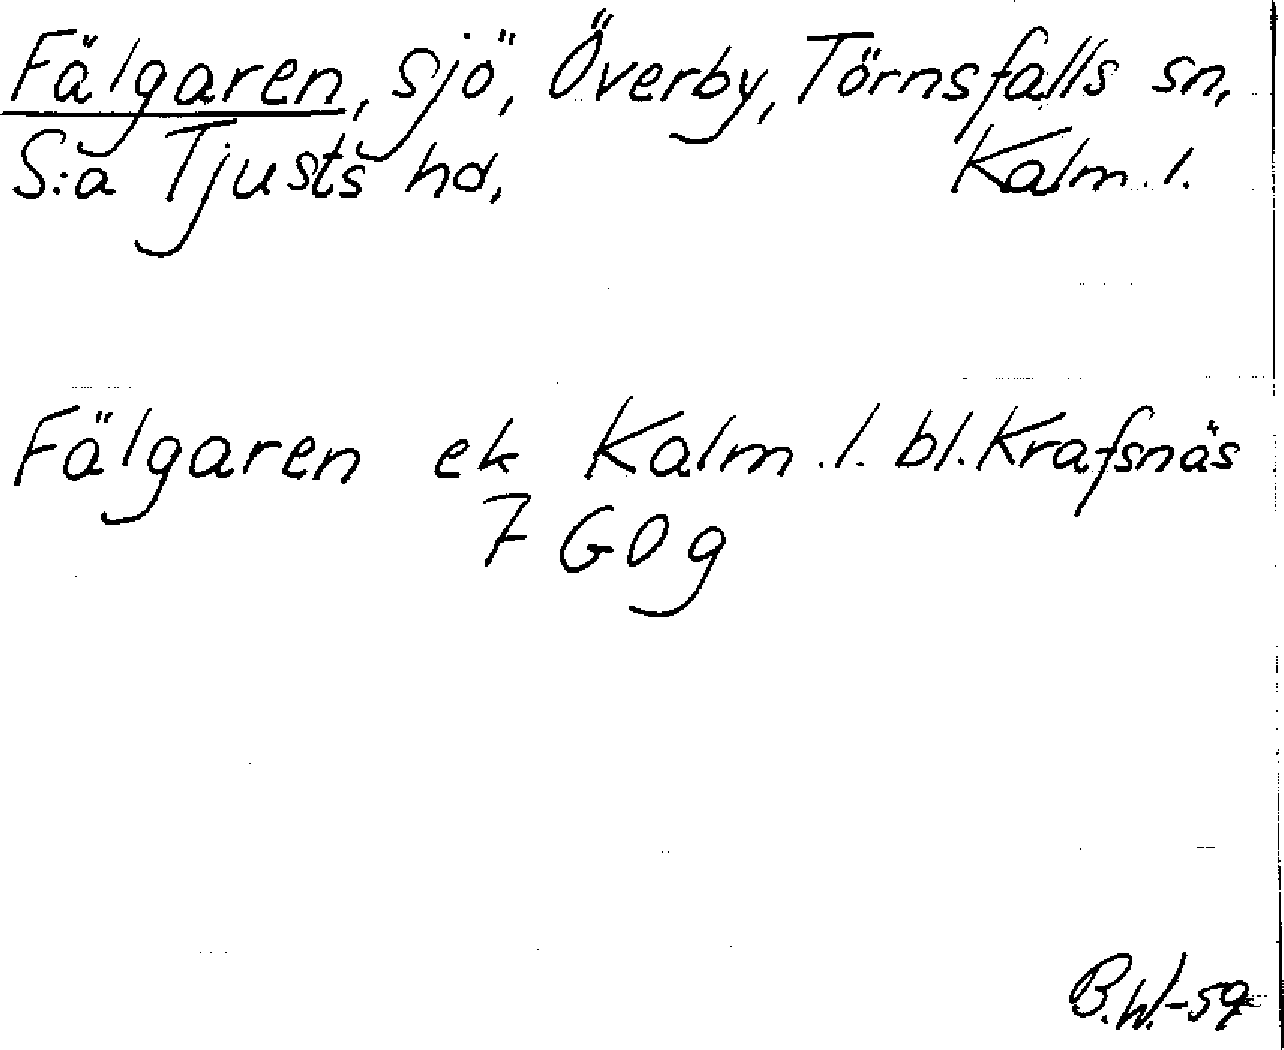 Fälgaren, sjö, Överby, Törnsfalls sn,
S:a Tjusts hd, Kalm. l.
Fälgaren ek Kalm. l. bl. Krafsnäs
7 GO g
B.W.-59